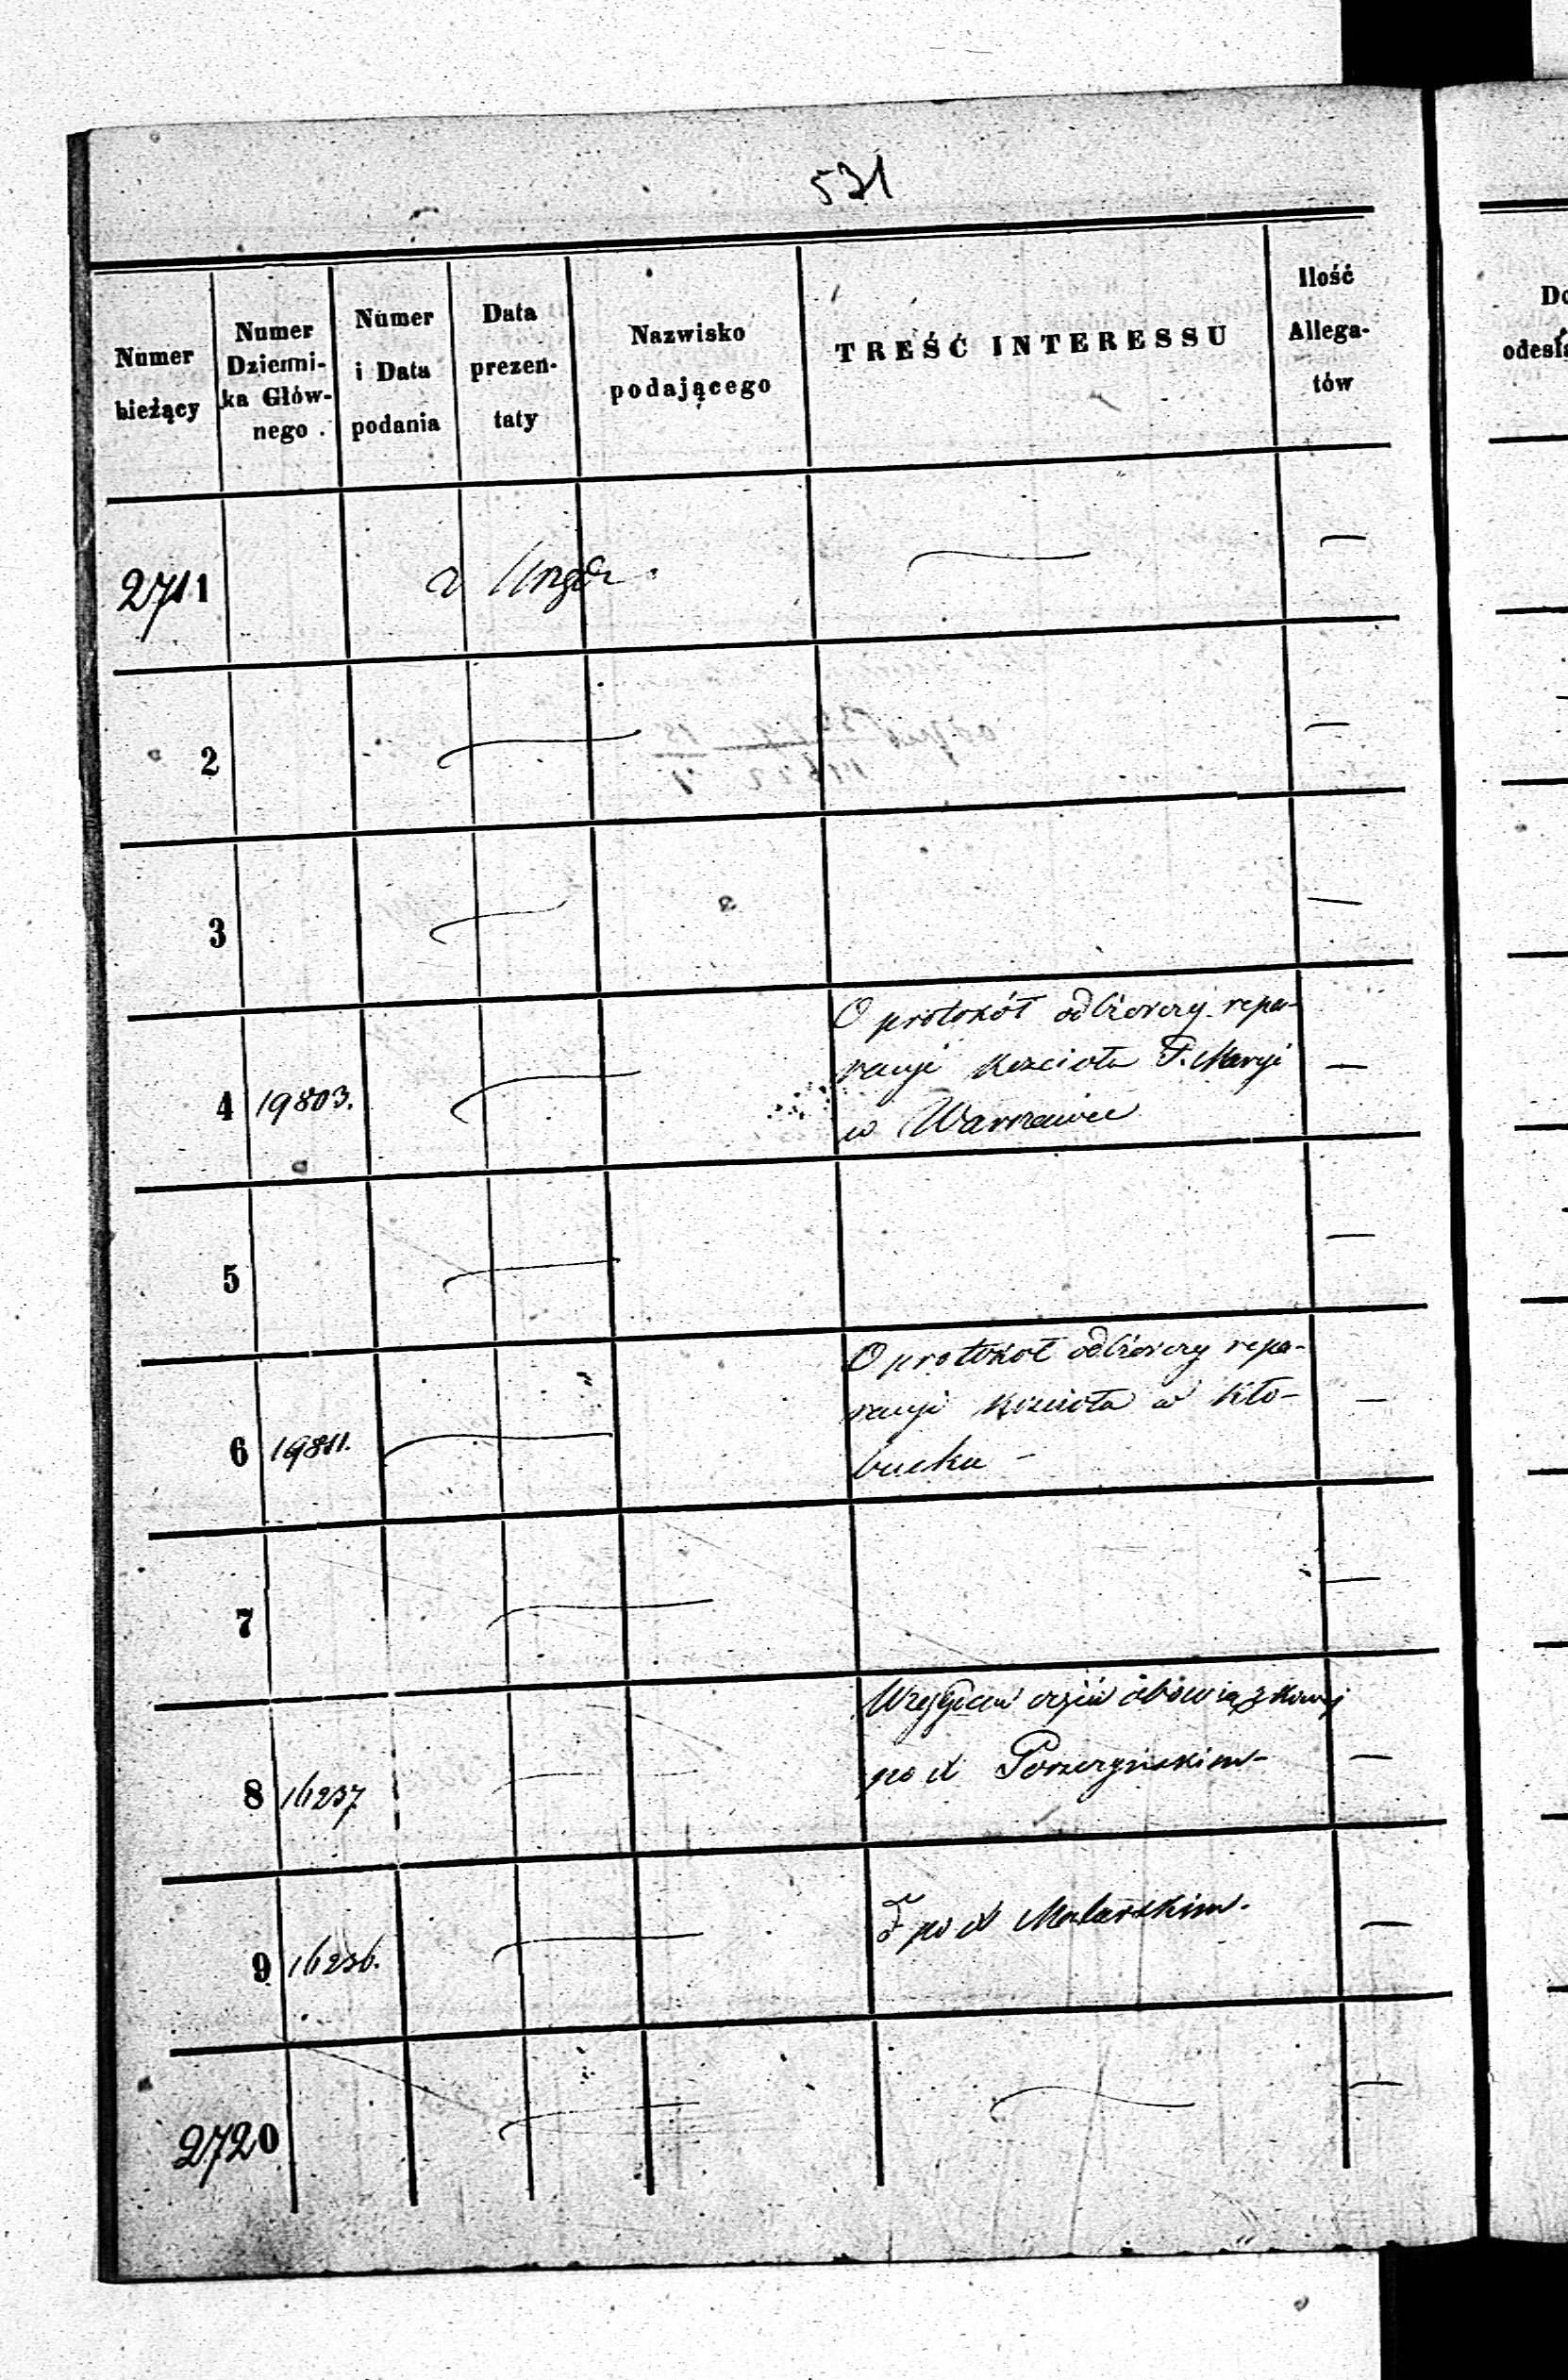 531
Numer bieżący
Numer Dzienni-ka Głów-nego.
Numer i Data podania
Data prezen-taty
Nazwisko podającego
TREŚĆ INTERESSU
Ilość Allega-tów
Do
odesła
2711
z Urzędu
2
3
4 19803.
O protokół odbiorczy repa-
racyi kościoła P. Maryi
w Warszawie
5
6 19811.
O protokół odbiorczy repa-
racyi kościoła w Kło-
bucku –
7
8 16237
po X Porzczyńskim
9 16236.
po X Malarskim.
2720